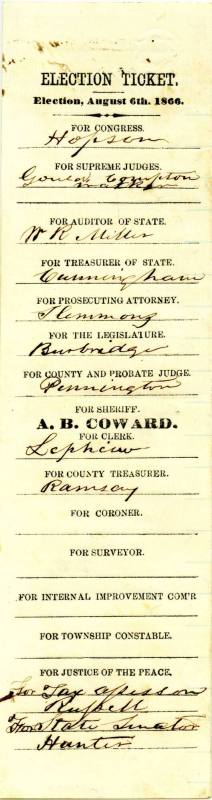 ELECTION TICKET.
Election, August 6th. 1866.
FOR CONGRESS.
Hopson
FOR SUPREME JUDGES.
Compton
Walker
FOR AUDITOR OF STATE.
W R Miller
FOR TREASURER OF STATE.
Cunningham
FOR PROSECUTING ATTORNEY.
Slemmons
FOR THE LEGISLATURE.
Burbridge
FOR COUNTY AND PROBATE JUDGE.
Pennington
FOR SHERIFF.
A. B. COWARD.
FOR CLERK.
FOR COUNTY TREASURER.
Ramsay
FOR CORONER.
FOR SURVEYOR.
FOR INTERNAL IMPROVEMENT COM'R
FOR TOWNSHIP CONSTABLE.
FOR JUSTICE OF THE PEACE.
For Tax Assessor
Russell
For State Senator
Hunter